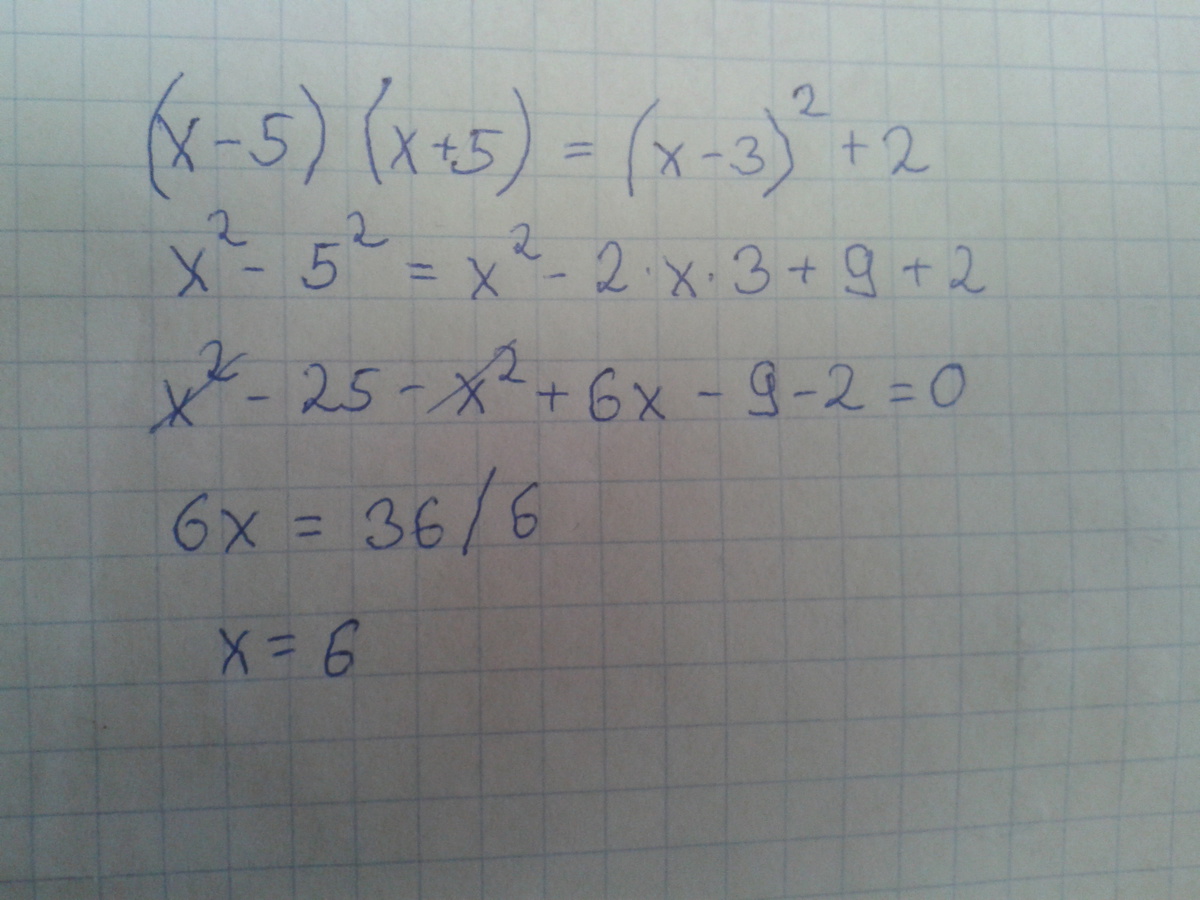 (x-5) (x+5) = (x-3)² + 2
x² - 5² = x² - 2·x·3 + 9 + 2
x² - 25 - x² + 6x - 9 - 2 = 0
6x = 36 / 6
x = 6